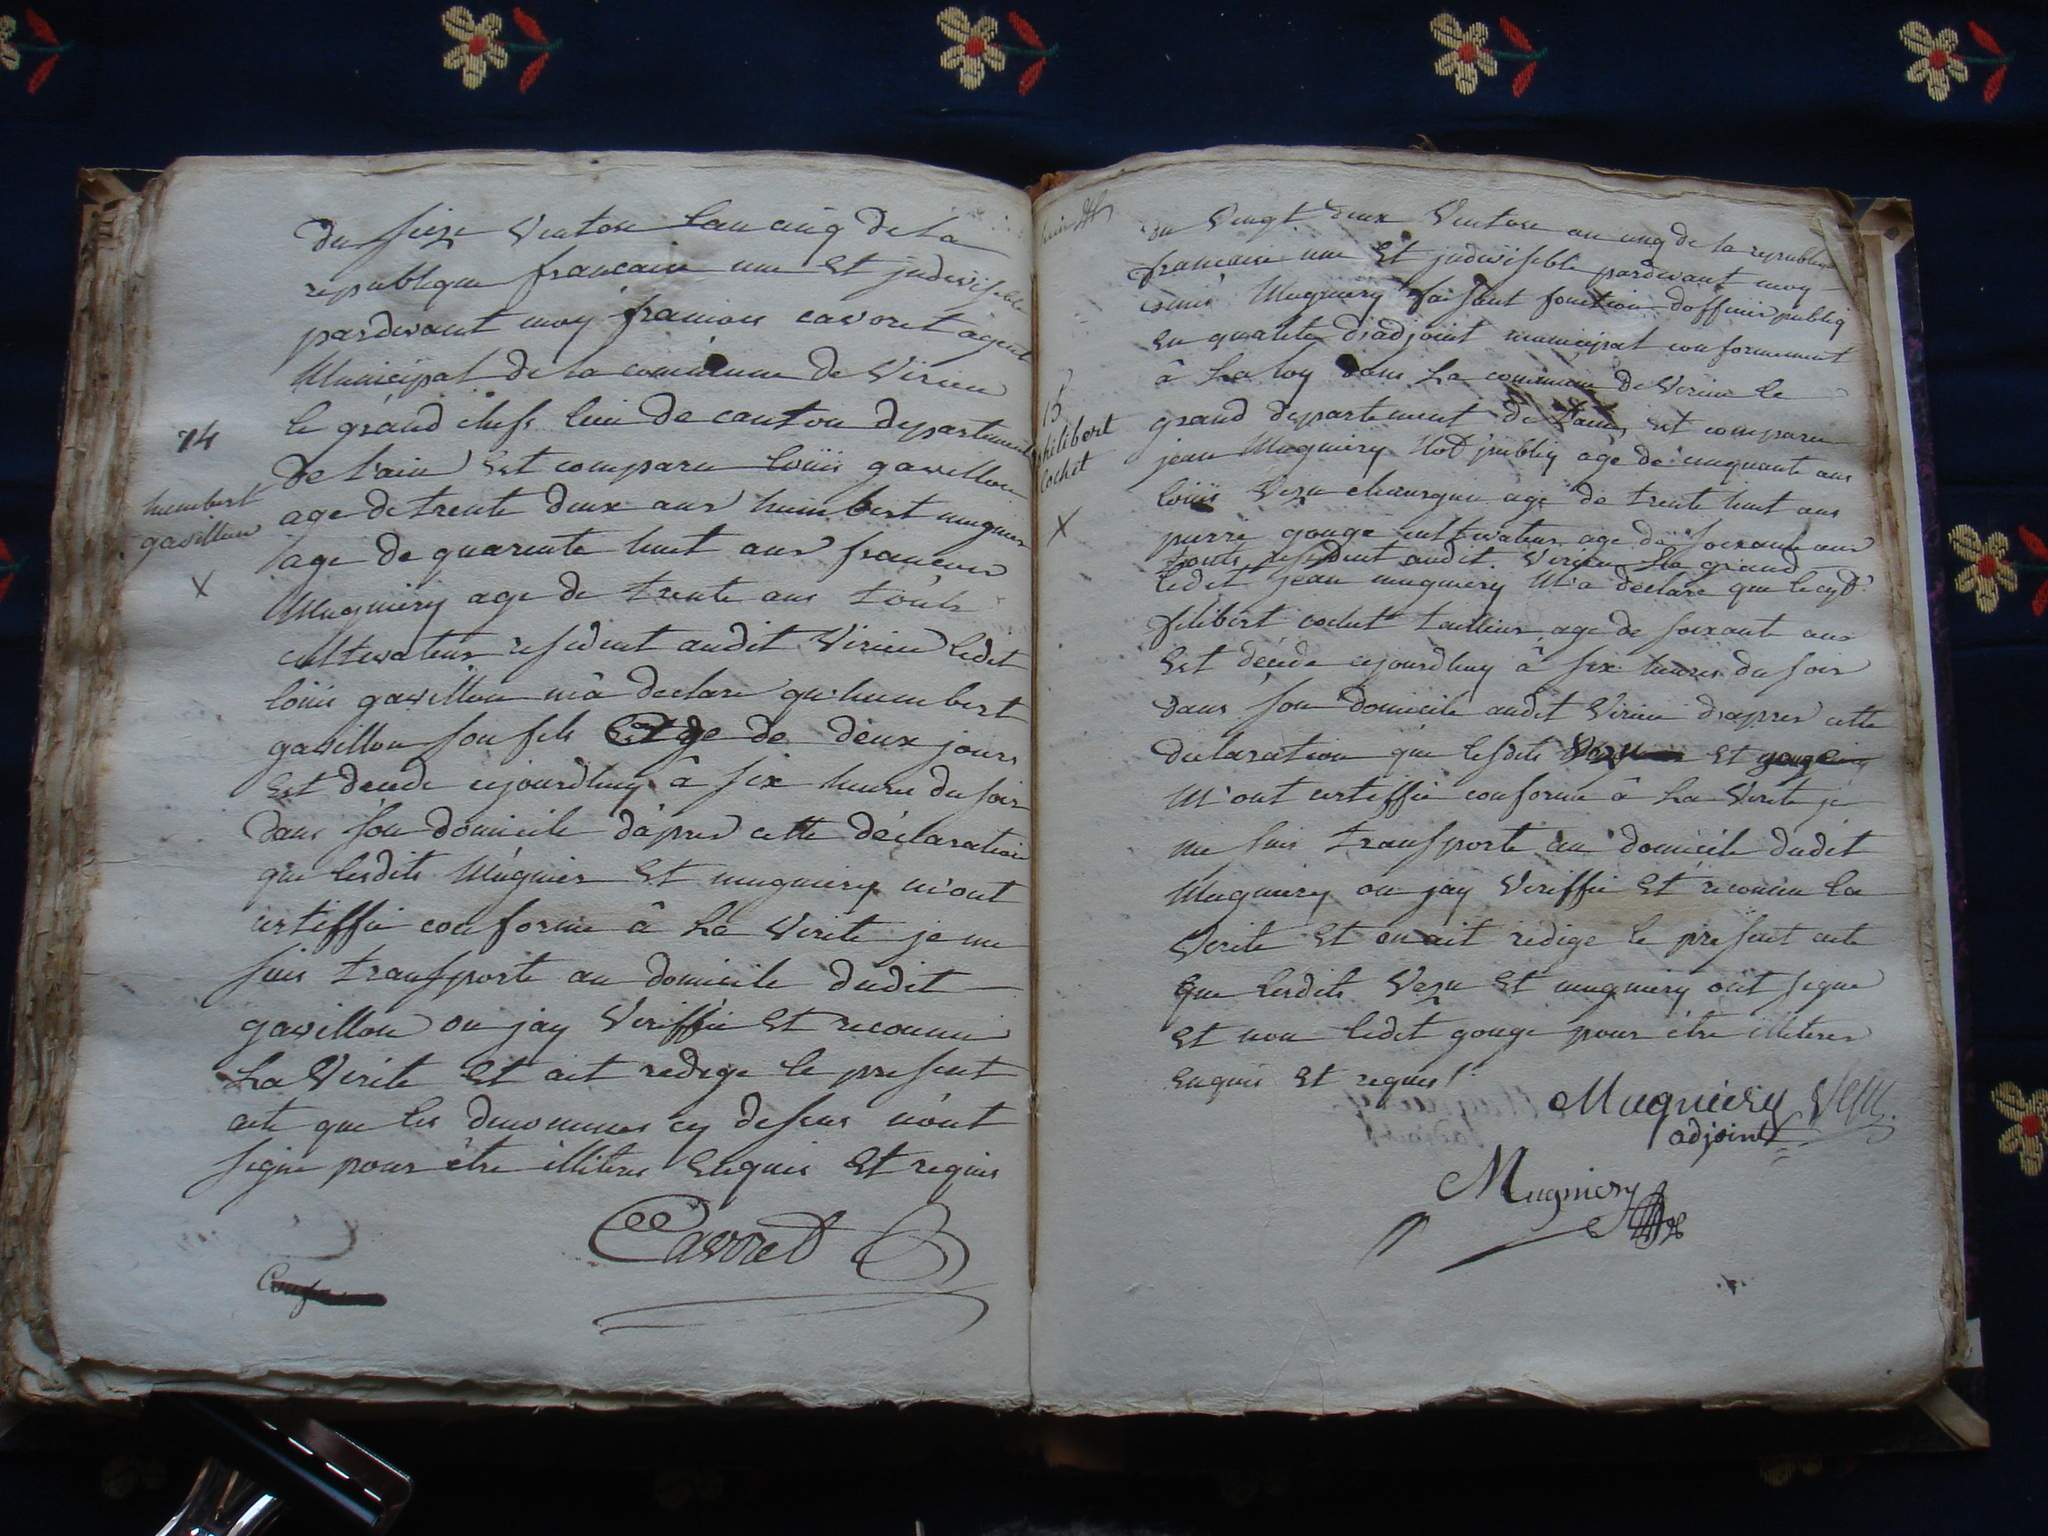 du seize ventose lan cinq de la
republique francaise une et judivisible
pardevant moy francois cavoret agent
Municipal de la commune de Virieu
le grand chefs lieu de canton departement
14
de l'ain est comparu loüis gavillon
humbert
gavillon
age de trente deux ans humbert mugnier
age de quarente huit ans francois
X
Mugniéry age de trente ans touts
cultivateurs resident audit Virieu ledit
loüis gavillon m'â declare qu'humbert
gavillon son fils age de deux jours
est decede cejourdhuy â six heures du soir
dans son domicile d'apres cette déclaration
que lesdits Mugnier et mugniery m'ont
certiffie conforme â la verite je me
suis transporte au domicile dudit
gavillon ou jay veriffie et reconnu
la verite et ait redige le present
acte que les denommes cy dessus n'ont
signe pour être illiteres enquis et requis
Cavoret
du vingt deux ventose an cinq de la republique
francaise une et judivisible pardevant moy
Mugniery faisant fonction d'officier publiq
en qualite d'adjoint municipal conformement
â la loy dans la commune de Virieu le
grand departement de l'ain, est comparu
15
philibert
cochet
jean Mugniery Not publiq age de cinquante ans
loüis Vezu age de trente huit ans
X
pierre gouge cultivateur age de soixante ans
touts resident audit Virieu le grand
ledit jean mugniery m'a declare que le cyt
filibert cochet tailleur age de soixante ans
est décéde cejourdhuy â six heures du soir
dans son domicile audit Virieu d'apres cette
declaration que lesdits Vezu et gouge
m'ont certiffie conforme â la verite je
me suis transporte au domicile dudit
Mugniery ou jay veriffie et reconnu la
verite et en ait redige le present acte
que lesdits Vezu et mugniery ont signe
et non ledit gouge pour être illiteres
enquis et requis
Mugniery Vezu
adjoint
Mugniery